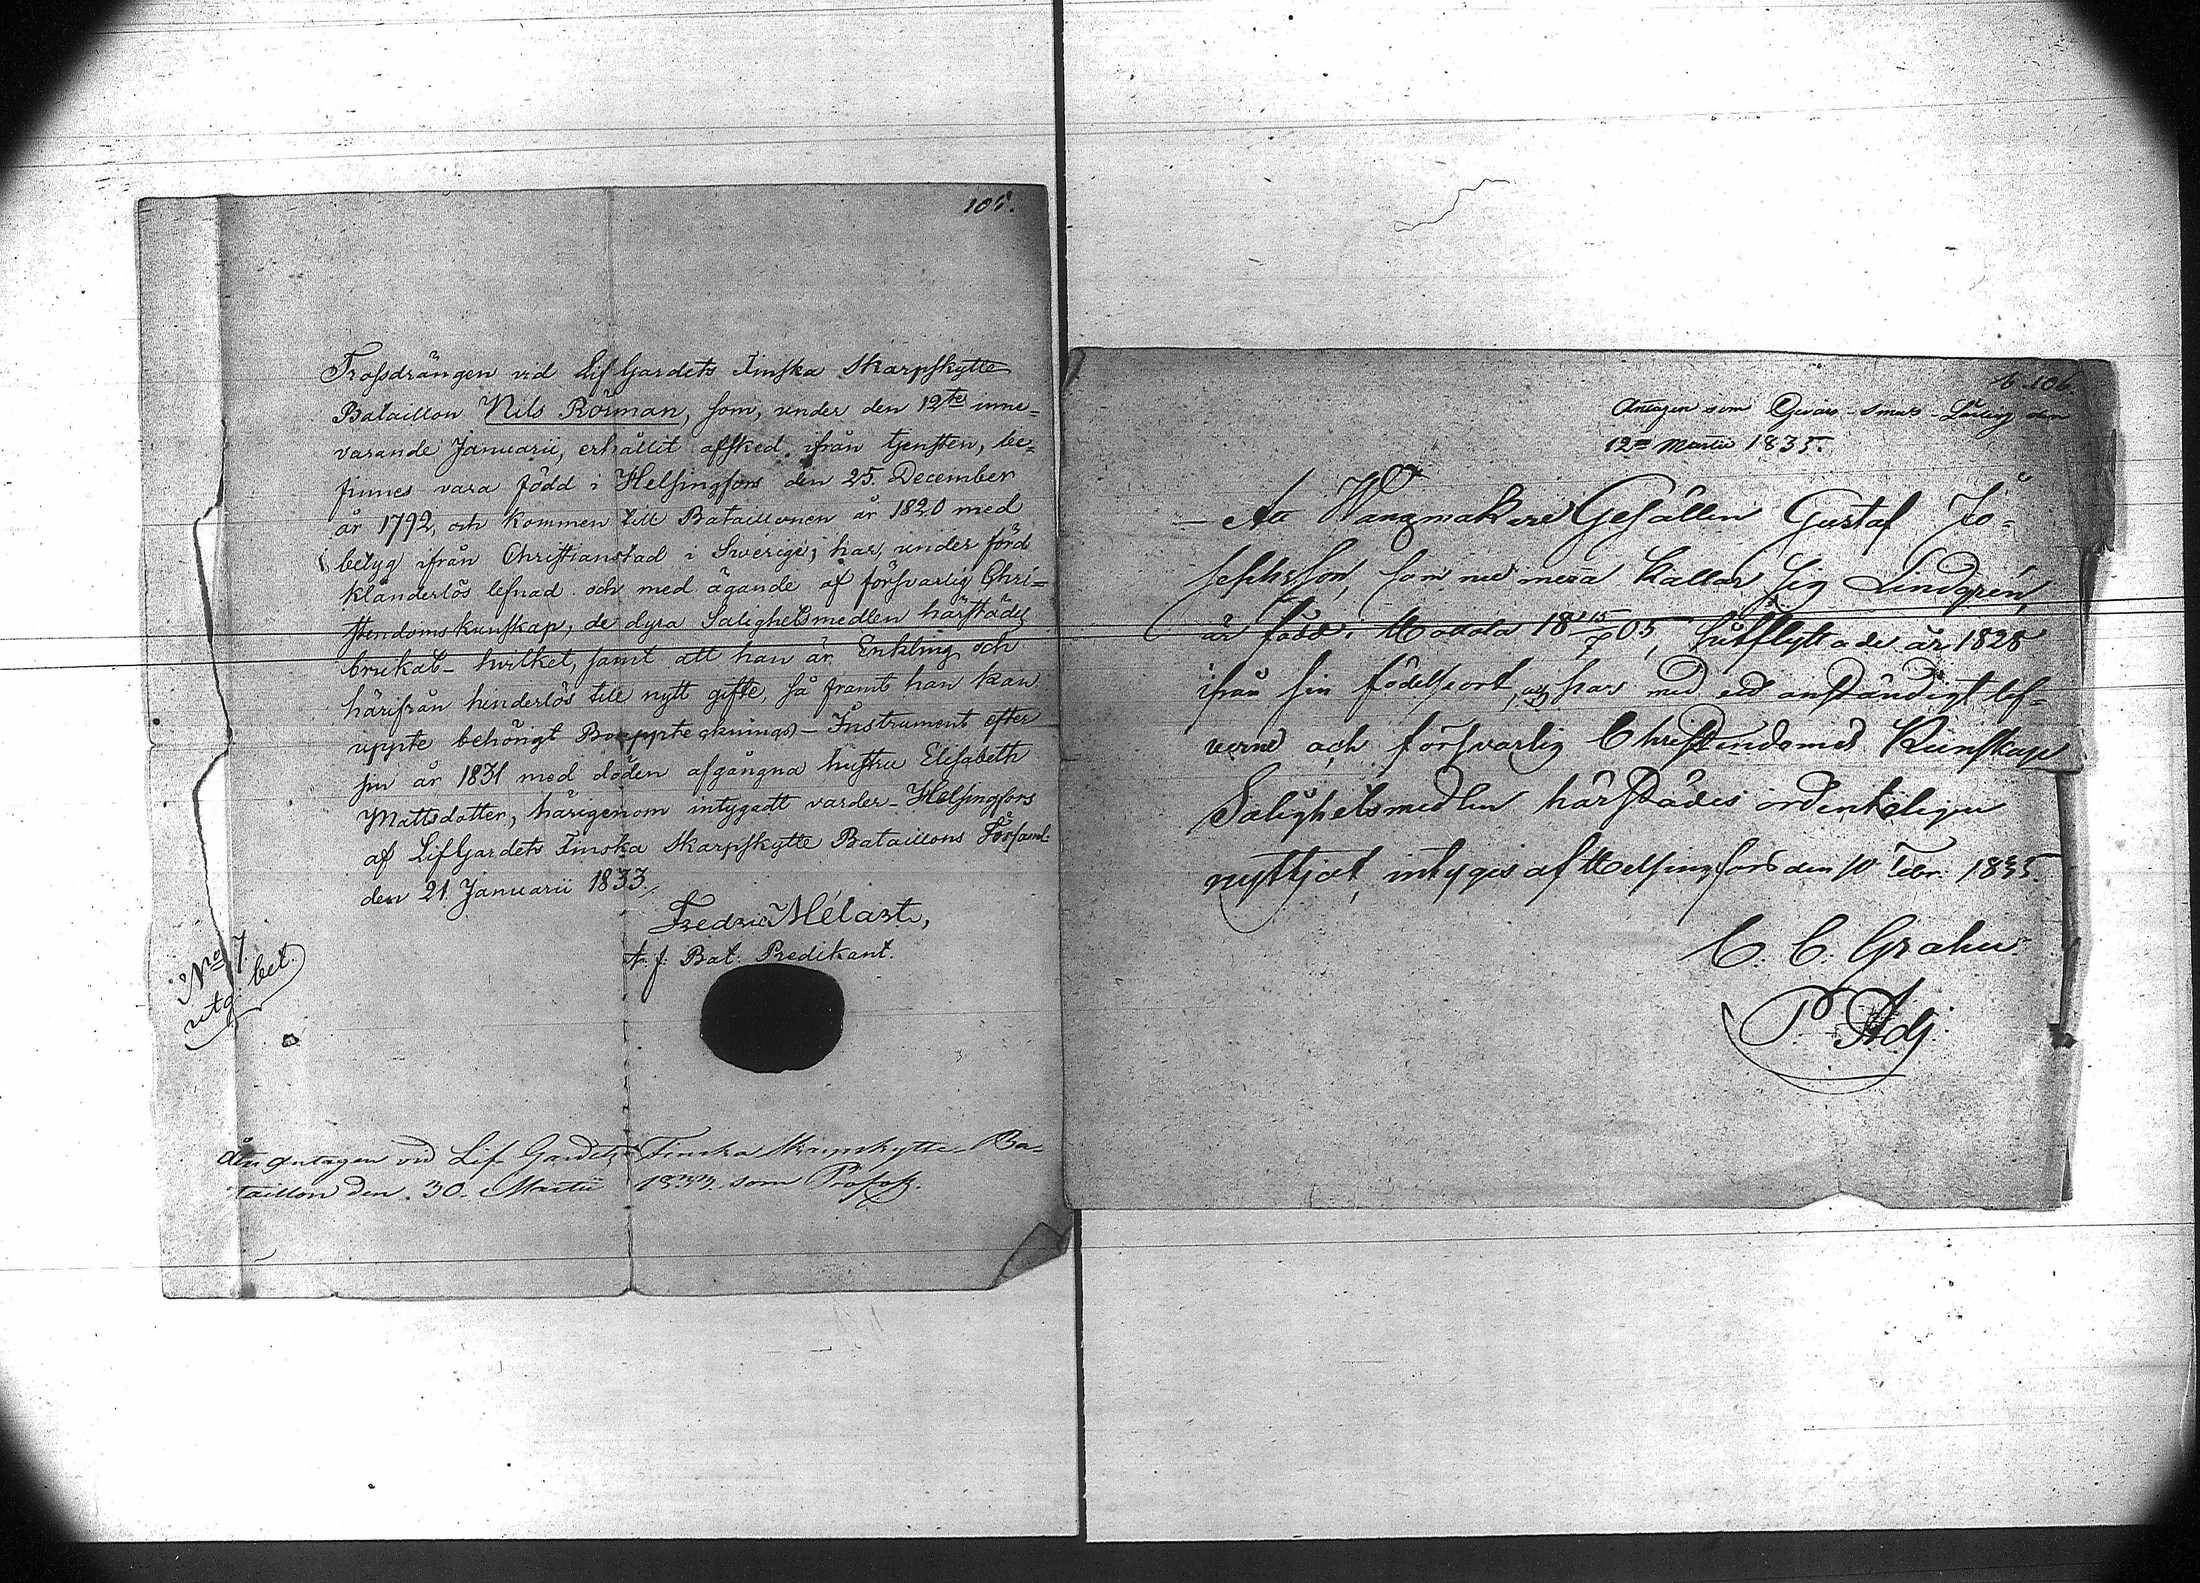 105.
Trossdrängen vid Lif Gardets Finska Skarpskytte
Bataillon Nils Rörman, som, under den 12te inne-
varande Januarii, erhållit afsked ifrån tjensten, be-
finnes vara född i Helsingfors den 25. December
år 1792, och kommen till Bataillonen år 1820 med
betyg ifrån Christianstad i Sverige; har, under förd
klanderlös lefnad och med ägande af försvarlig Chri-
stendomskunskap, de dyra Salighetsmedlen härstädes
brukat – hvilket, samt att han är Enkling och
härifrån hinderlös till nytt gifte, så framt han kan
uppte behöngt Bouppteknings-Instrument efter
sin år 1831 med döden afgångna hustru Elisabeth
Mattsdotter, härigenom intygadt varder – Helsingfors
af LifGardets Finska Skarpskytte Bataillons Församl.
den 21 Januarii 1833.
Fredric Mélart,
t. f. Bat. Predikant.
No 7.
utg. bet.
Åter antagen vid Lif Gardets Finska Skarpskytte-Ba-
taillon den 30. Martii 1833. som Profoss.
106
Antagen som Gevärs-smeds-Lärling den
12te Martii 1835.
Att Vangmakare Gesällen Gustaf Jo-
sephsson, som nu mera kallar sig Lindgrén,
är född i Hattola 18 15/7 05, utflyttade år 1828
ifrån sin födelseort, och har med ett anständigt lef-
verne och försvarlig Christendoms Kunskap
Salighetsmedlen härstädes ordenteligen
nyttjat, intygas af Helsingfors den 10 Febr. 1835.
C. C. Grahn.
P. Adj.